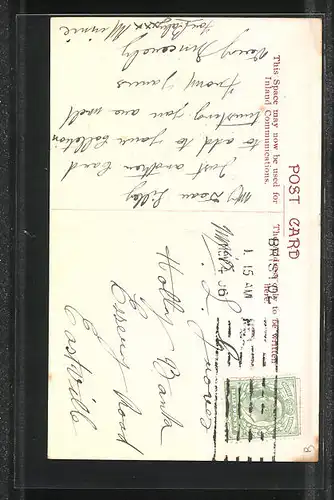 POST CARD
This Space may now be used for
Inland Communications.
The Address only to be written
here.
BRISTOL
1 15 AM
06
My Dear Lilly
Just another Card
to add to your Collection
trusting you are well
from yours
Very Sincerely
Minnie
Miss L.
Holly Bank
Road
Eastville